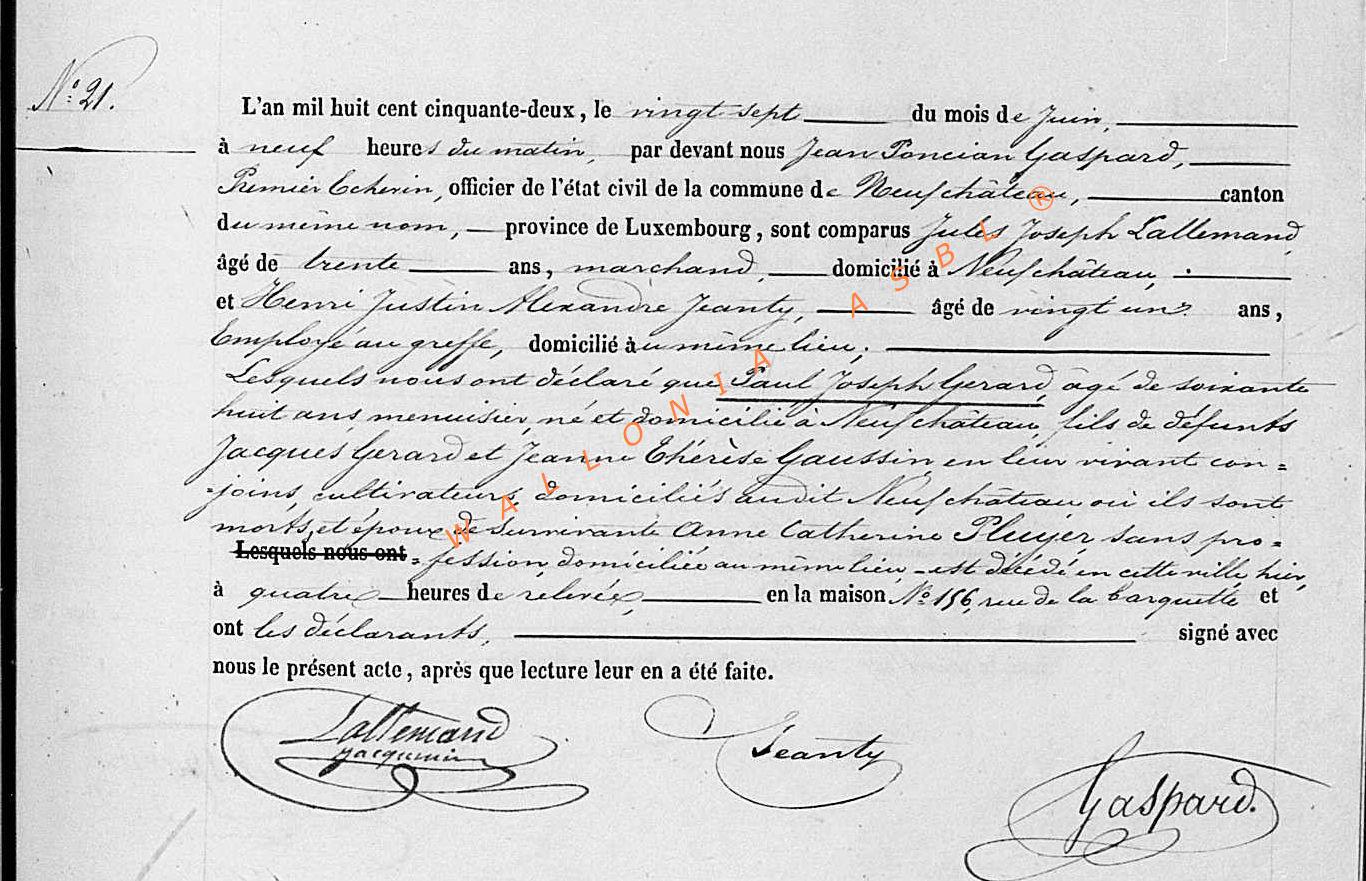 N.° 21.
L'an mil huit cent cinquante-deux, le vingt sept du mois de Juin,
à neuf heures du matin, par devant nous Jean Poncian Gaspard,
Premier Echevin, officier de l'état civil de la commune de Neufchâteau, canton
du même nom, province de Luxembourg, sont comparus Jules Joseph Lallemand,
âgé de trente ans, marchand, domicilié à Neufchâteau,
et Henri Justin Alexandre Jeanty, âgé de vingt un ans,
Employé au greffe, domicilié au même lieu;
Lesquels nous ont déclaré que Paul Joseph Gerard, âgé de soixante
huit ans, menuisier, né et domicilié à Neufchâteau, fils de défunts
Jacques Gerard et Jeanne Thérèse Gaussin, en leur vivant con=
=joins, cultivateurs, domiciliés audit Neufchâteau où ils sont
morts, et époux de Survivante Anne Catherine Pluyer, sans pro=
Lesquels nous ont =fession, domiciliée au même lieu, est décédé en cette ville, hier,
à quatre heures de relevée, en la maison N.° 156, rue de la barquette et
ont les déclarants, signé avec
nous le présent acte, après que lecture leur en a été faite.
Lallemand
Jacquemin
Jeanty
Gaspard.
WALLONIA ASBL ®